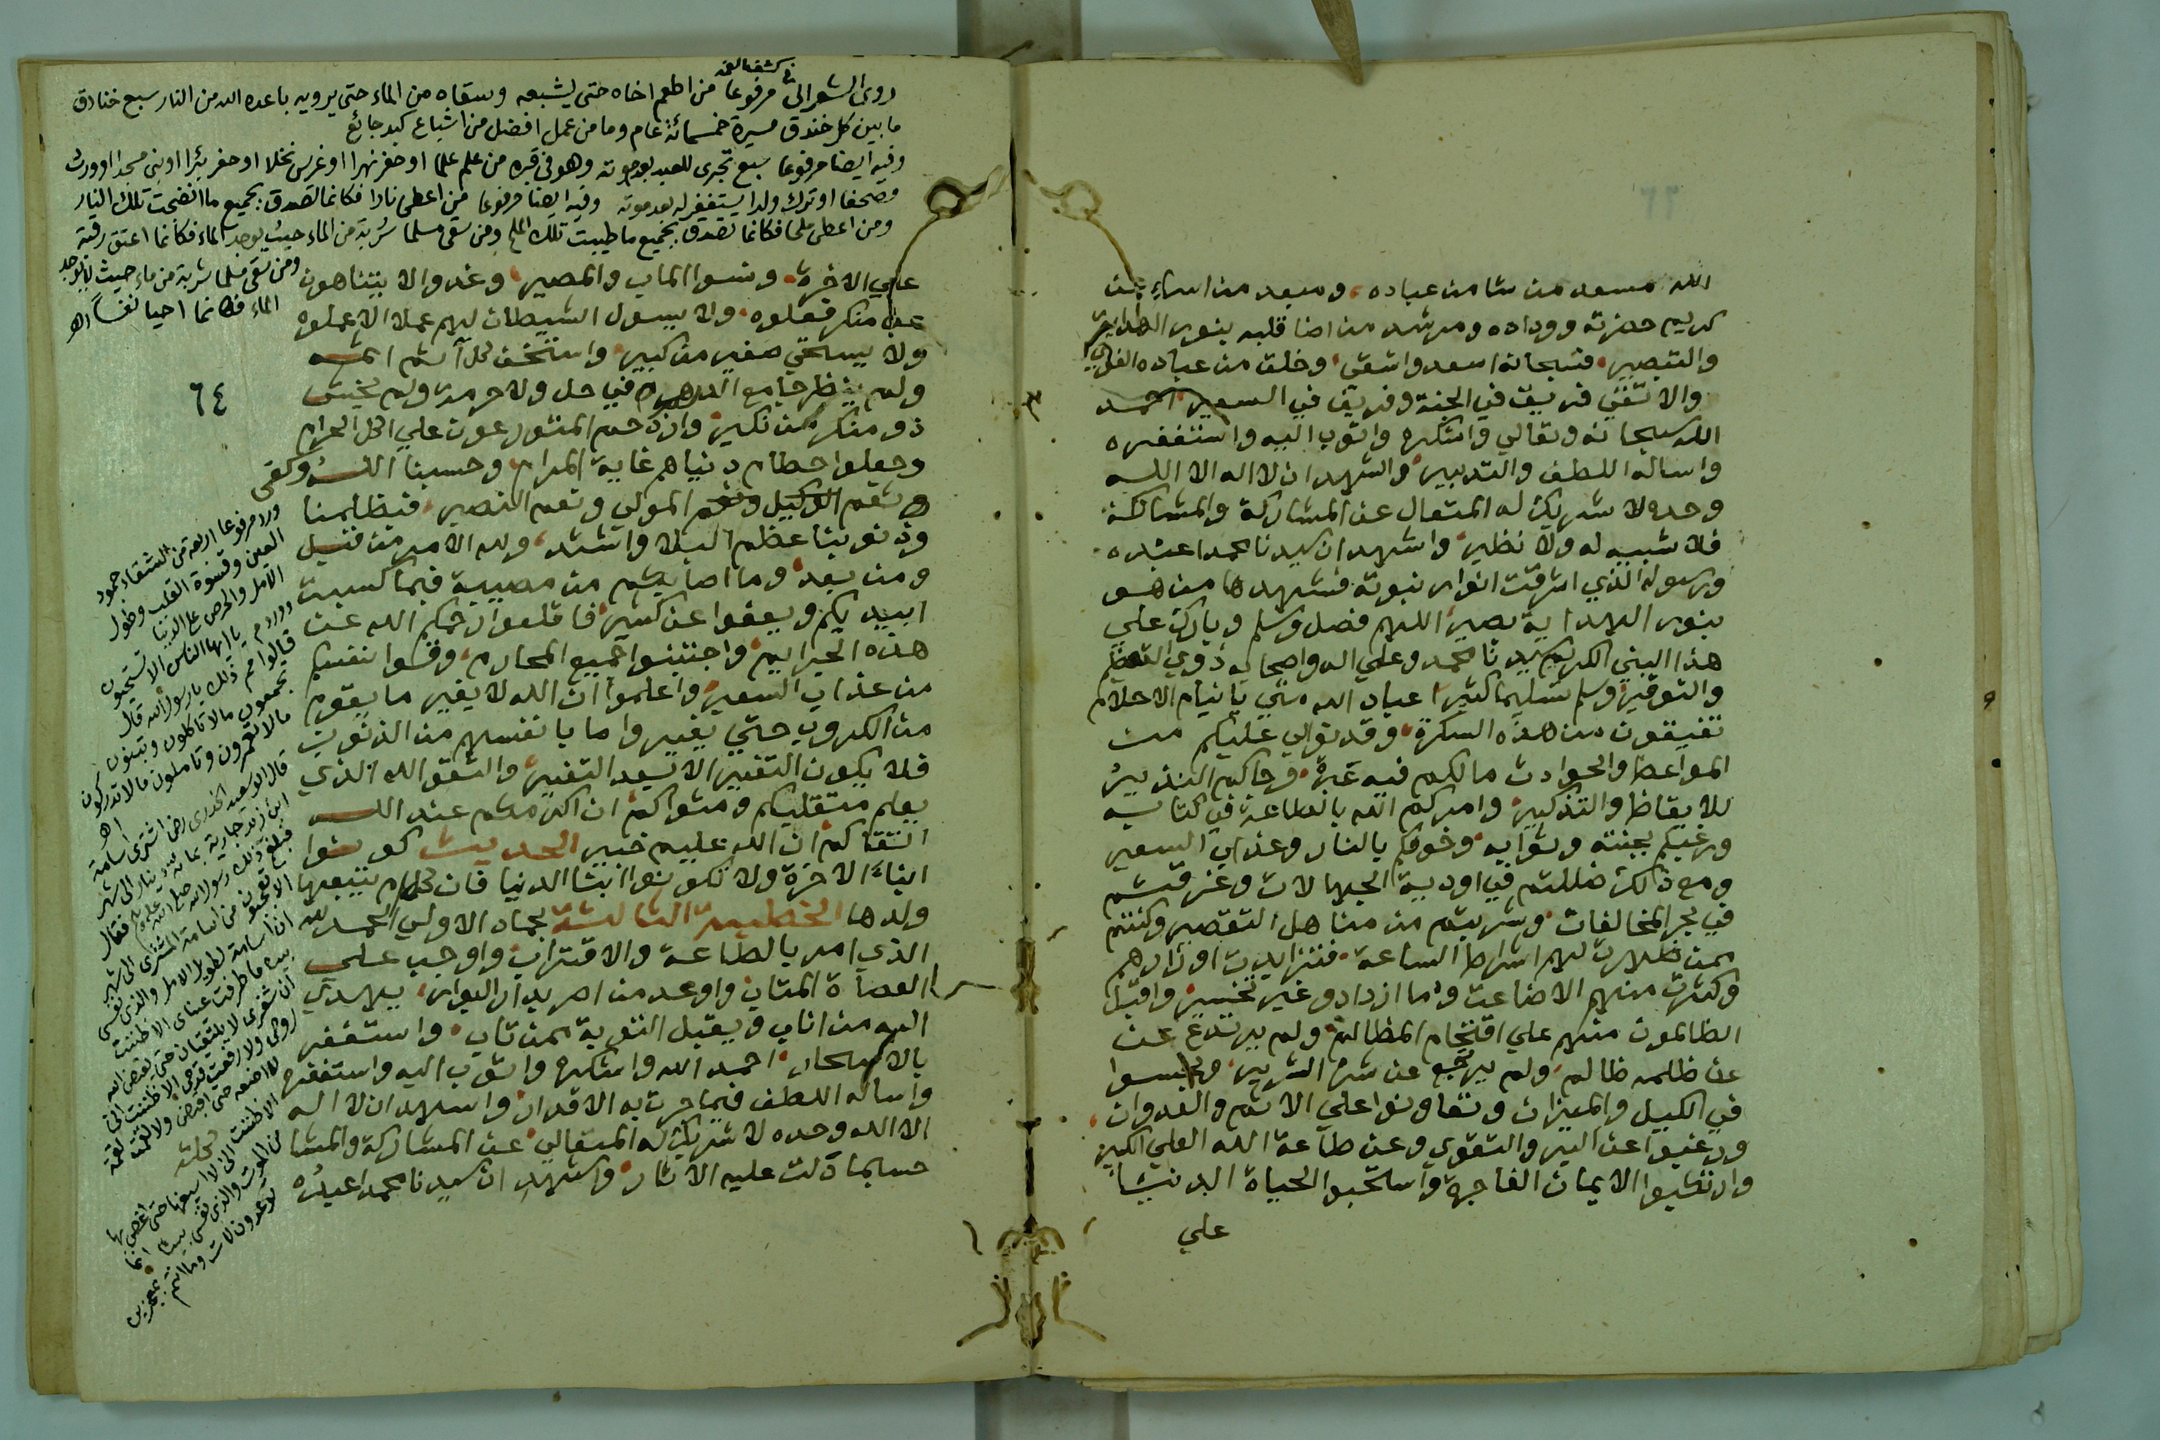 الله مسعد من شا من عباده ومبعد من اساء عن
كريم حضرته ووداده ومرشد من اضا قلبه بنور الهداية
والتبصير فسبحانه اسعد واشقى وخلق من عباده
والاتقى فريق في الجنة وفريق في السعير احمد
الله سبحانه وتعالي واشكره واتوب اليه واستغفره
واساله اللطف والتدبير واشهد ان لا اله الا الله
وحده لا شريك له المتعال عن المشاركة والمشاكلة
فلا شبيه له ولا نظير واشهد ان سيدنا محمدا عبده
ورسوله الذي اشرقت انوار نبوته فشهدها من هو
بنور الهداية بصير اللهم فصل وسلم وبارك علي
هذا النبي الكريم سيدنا محمد وعلي اله واصحابه ذوي التعظيم
والتوقير وسلم تسليما كثيرا عباد الله متي يا نيام الاحلام
تفيقون من هذه السكرة وقد توالي عليكم من
المواعظ والحوادث مالكم فيه عبرة وجاكم النذير
للايقاظ والتذكير وامركم الله بالطاعة في كتابه
ورغبكم بجنته وثوابه وخوفكم بالنار وعذاب السعير
ومع ذلك ضللتم في اودية الجهالات وغرقتم
في بحر المخالفات وشربتم من مناهل التقصير وكنتم
ممن ظهرت لهم اشراط الساعة فتزايدت اوزارهم
وكثرت منهم الاضاعة وما ازدادو غير تخسير واقبل
الظالمون منهم علي اقتحام المظالم ولم يرتدع عن
عن ظلمه ظالم ولم يرجع عن شره الشرير وبخسوا
في الكيل والميزان وتعاونوا علي الاثم والعدوان
ورغبوا عن البر والتقوي وعن طاعة الله العلي الكبير
وارتكبوا الايمان الفاجرة واستحبوا الحياة الدنيا
علي
روى الشعرانى فى كشف الغمه مرفوعا من اطعم اخاه حتى يشبعه وسقاه من الماء حتى يرويه باعده الله من النار سبع خنادق
ما بين كل خندق مسيرة خمسمائة عام وما من عمل افضل من اشباع كبد جائع
وفيه ايضا مرفوعا سبع تجرى للعبد بعد موته وهو فى قبره من علم علما او حفر نهرا او غرس نخلا او حفر بئرا او بنى مسجدا او ورث
مصحفا او ترك ولدا يستغفر له بعد موته وفيه ايضا مرفوعا من اعطى نارا فكانما تصدق بجميع ما انضجت تلك النار
ومن اعطى ملحا فكانما تصدق بجميع ما طيبت تلك الملح ومن سقى مسلما شربة من الماء حيث يوجد الماء فكانما اعتق رقبة
ومن سقى مسلما شربة من ماء حيث لا يوجد
الماء فكانما احيا نفسا اهـ
علي الاخرة ونسوا الماب والمصير وغدوا لا يتناهون
عن منكر فعلوه ولا يسول الشيطان لهم عملا الا عملوه
ولا يستحي صغير من كبير واستخف كل آثم اثمه
ولم ينظر جامع الدرهم في حل ولا حرمة ولم يخش
ذو منكر من نكير وازدحم المتورعون علي اكل الحرام
وجعلوا حطام دنياهم غاية المرام وحسبنا الله وكفى
ونعم الوكيل ونعم المولي ونعم النصير فبظلمنا
وذنوبنا عظم البلا واشتد ولله الامر من قبل
ومن بعد وما اصابكم من مصيبة فبما كسبت
ايديكم ويعفوا عن كثير فاقلعوا رحمكم الله عن
هذه الجرايم واجتنبوا جميع المحارم وقوا انفسكم
من عذاب السعير واعلموا ان الله لا يغير ما بقوم
من الكروب حتي يغيروا ما بانفسهم من الذنوب
فلا يكون التغيير الا بعد التغيير واتقو الله الذي
يعلم متقلبكم ومثواكم ان اكرمكم عند الله
اتقاكم ان الله عليم خبير الحديث كونوا
ابناء الاخرة ولا تكونوا ابنا الدنيا فان كل ام يتبعها
ولدها الخطبة الثالثة بجماد الاولي الحمد لله
الذي امر بالطاعة والاقتراب واوجب علي
العصاة المتاب واوعد من اصر بدار البوار يهدي
اليه من اناب ويقبل التوبة ممن تاب واستغفر
بالاسحار احمد الله واشكره واتوب اليه واستغفره
واساله اللطف فيما جرت به الاقدار واشهد ان لا اله
الا الله وحده لا شريك له المتعالي عن المشاركة والمشا كلة
حسبما دلت عليه الاثار واشهد ان سيدنا محمدا عبده
٦٤
ورد مرفوعا اربعة من الشقاء جمود
العين وقسوة القلب وطول
الامل والحرص على الدنيا
وورد يا ايها الناس الا تستحيون
قالوا مم ذلك يا رسول الله قال
تجمعون مالا تاكلون وتبنون
مالا تعمرون وتاملون مالا تدركون
اهـ
قال ابو سعيد الخدرى رضى اشترى اسامة
ابن زيد جارية بمائة دينار الى شهر
فبلغ ذلك رسول الله صلى الله عليه وسلم فقال
الا تعجبون من اسامة المشترى الى شهر
ان اسامة لطويل الامل والذى نفسى
بيده ما طرفت عيناى الا ظننت
ان شفرى لا يلتقيان حتى يقبض الله
روحى ولا رفعت قدحى الا ظننت انى
لا اضعه حتى اقبض ولا لقمت لقمة
الا ظننت انى لا اسيغها حتى اغص بها
من الموت والذى نفسى بيده انما
توعدون لات وما انتم بمعجزين